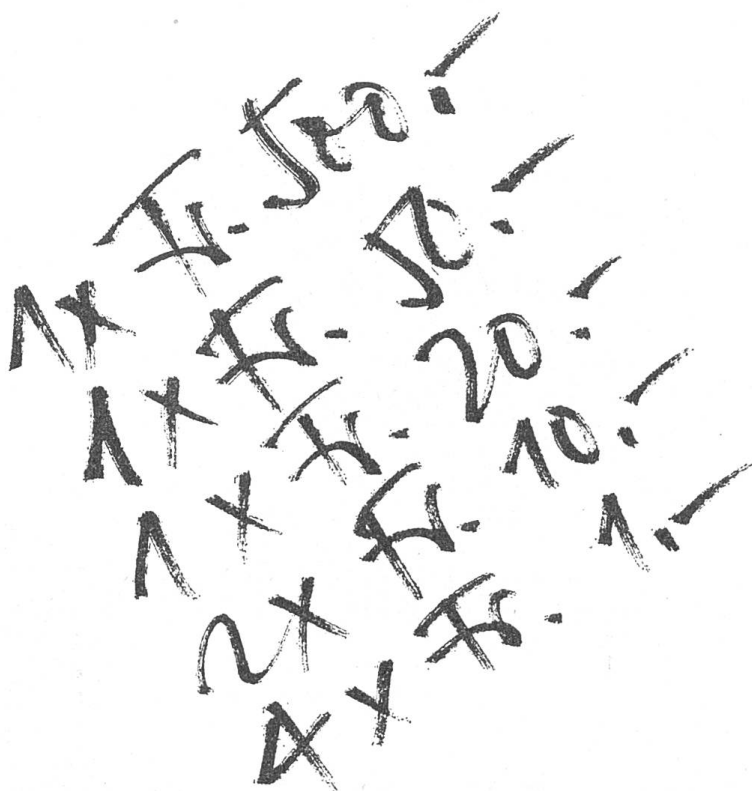 1x Fr. 500.-
1x Fr. 50.-
1x Fr. 20.-
2x Fr. 10.-
4x Fr. 1.-